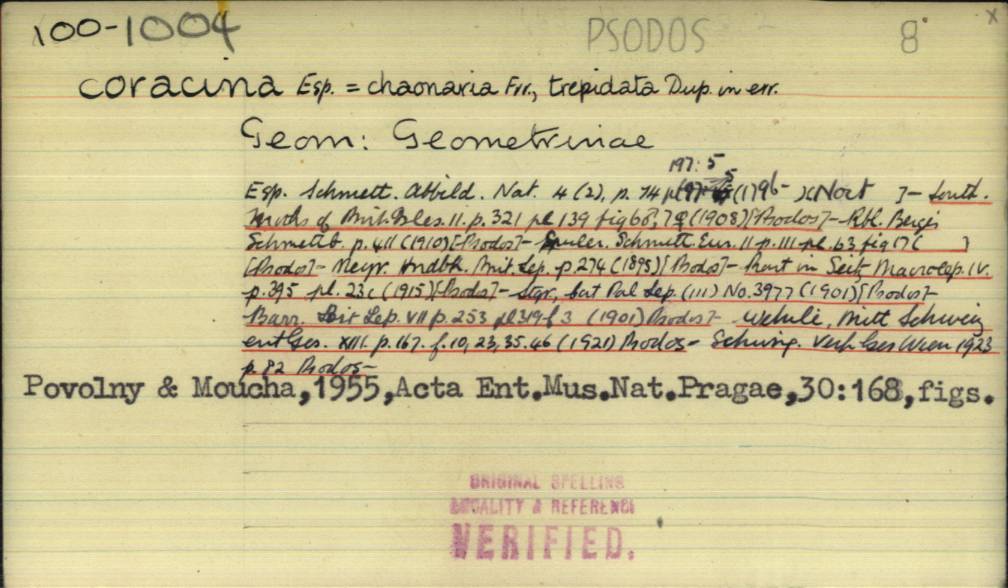 100-1004 PSODOS 8 x
coracina Esp. = chaonaria Frr., trepidata Dup. in err.
Geom: Geometrinae
197: 5
Esp. Schmett. Abbild. Nat. 4 (2), p. 74 pl (1796- )(Noct ]- South.
Moths of Brit. Isles. 11. p. 321 pl 139 fig 6♂, 7♀ (1908) [Psodos]- Rbl. Berges
Schmettb. p. 411 (1910) [Psodos]- Spuler. Schmett. Eur. 11 p. 111 pl. 63 fig 17 ( )
[Psodos]- Meyr. Hndbk. Brit. Lep. p. 274 (1895) [Psodos]- Prout in Seitz Macrolep. IV.
p. 395 pl. 23c (1915) [Psodos]- Stgr. Cat Pal Lep. (111) No. 3977 (1901) [Psodos]-
Barr. Brit Lep. VII p. 253 pl 319 f 3 (1901) Psodos]- Wehrli, Mitt Schweiz
ent Ges. XIII. p. 167. f. 10, 23, 35. 46 (1921) Psodos- Schwing. Verh Ges Wien 1923
p. 82 Psodos-
Povolny & Moucha,1955,Acta Ent.Mus.Nat.Pragae,30:168,figs.
ORIGINAL SPELLING
LOCALITY & REFERENCE
VERIFIED.